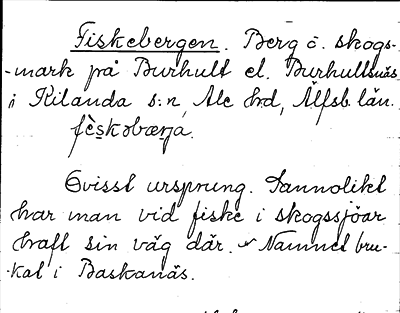 Fiskebergen. Berg o. skogs-
-mark på Burhult el. Burhultsnäs
i Kilanda s:n, Ale hrd, Älfsb. län.
fèskəbærja.
Ovisst ursprung. Sannolikt
har man vid fiske i skogssjöar
haft sin väg där. Namnet bru-
-kat i Baskanäs.